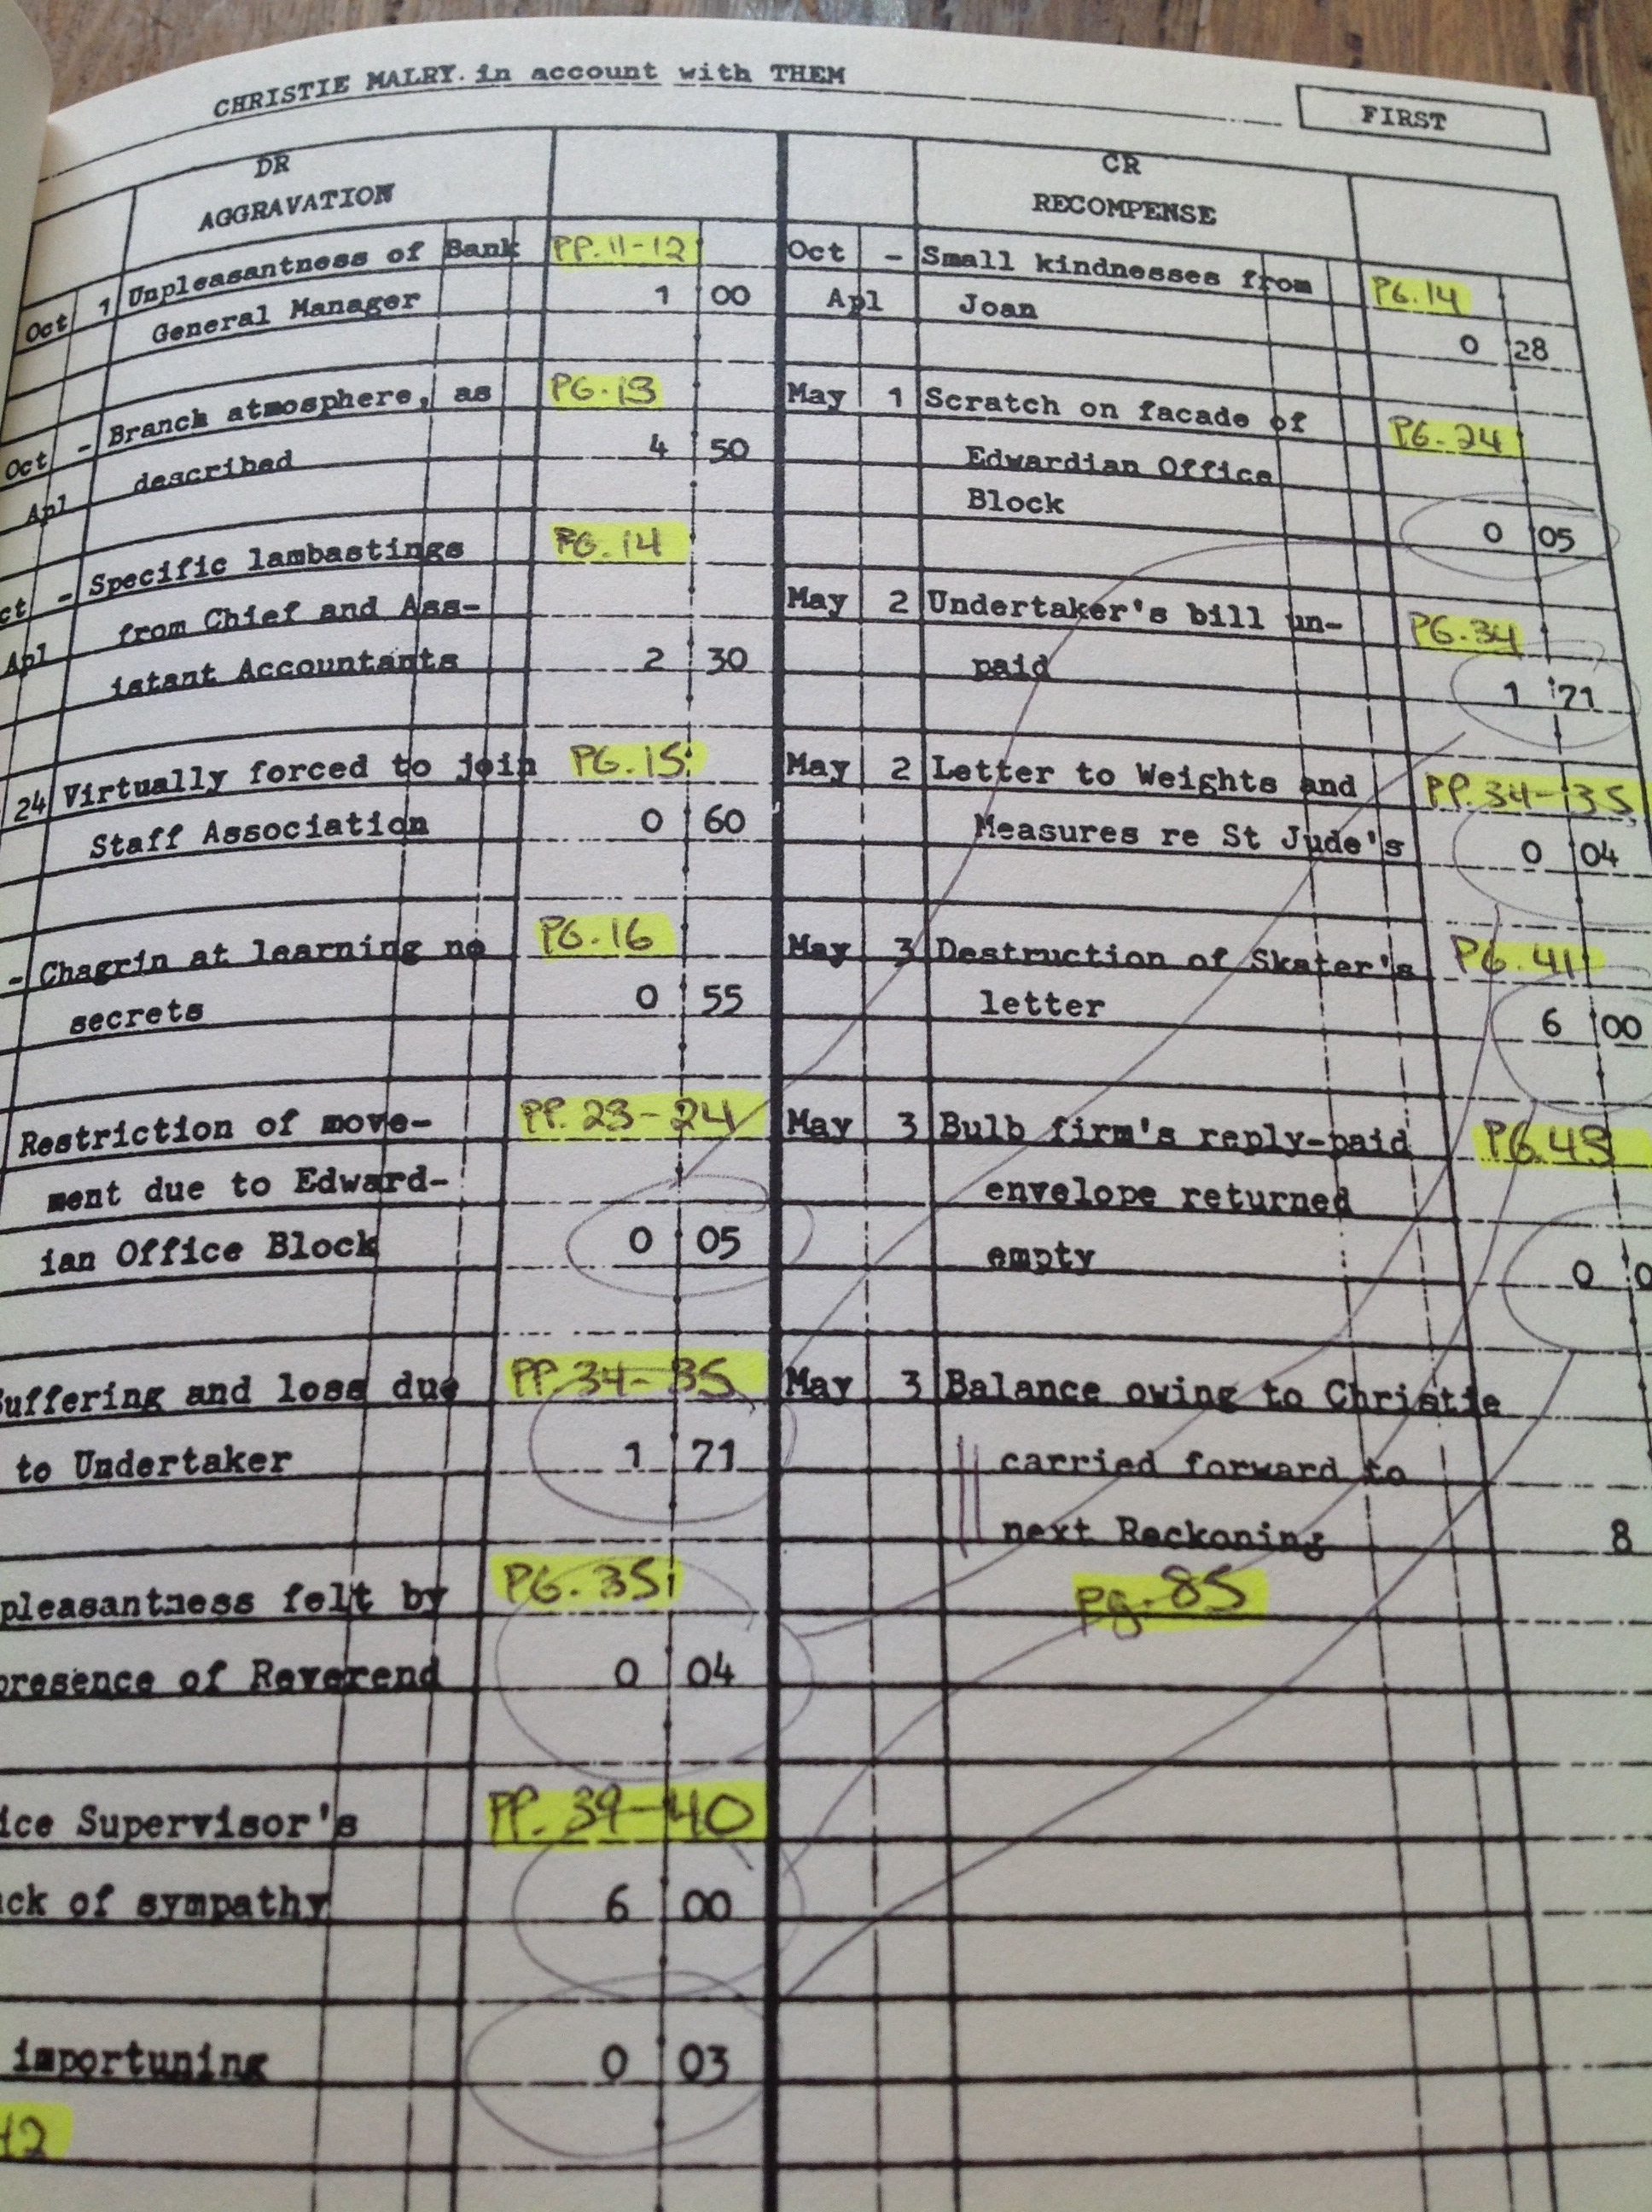 CHRISTIE MALRY. in account with THEM
FIRST
DR
AGGRAVATION
Oct 1 Unpleasantness of Bank PP. 11-12
General Manager 1 00
Oct - Branch atmosphere, as PG. 13
Apl described 4 50
ct - Specific lambastings PG. 14
Apl from Chief and Ass-
istant Accountants 2 30
24 Virtually forced to join PG. 15
Staff Association 0 60
- Chagrin at learning no PG. 16
secrets 0 55
Restriction of move- PP. 23-24
ment due to Edward-
ian Office Block 0 05
uffering and loss due PP. 34-35
to Undertaker 1 71
pleasantness felt by PG. 35
presence of Reverend 0 04
ice Supervisor's PP. 39-40
ck of sympathy 6 00
importuning 0 03
42
CR
RECOMPENSE
Oct - Small kindnesses from PG. 14
Apl Joan 0 28
May 1 Scratch on facade of PG. 24
Edwardian Office
Block 0 05
May 2 Undertaker's bill un- PG. 34
paid 1 71
May 2 Letter to Weights and PP. 34-35
Measures re St Jude's 0 04
May 3 Destruction of Skater's PG. 41
letter 6 00
May 3 Bulb firm's reply-paid PG. 43
envelope returned
empty 0 0
May 3 Balance owing to Christie
carried forward to
next Reckoning 8
pg. 85